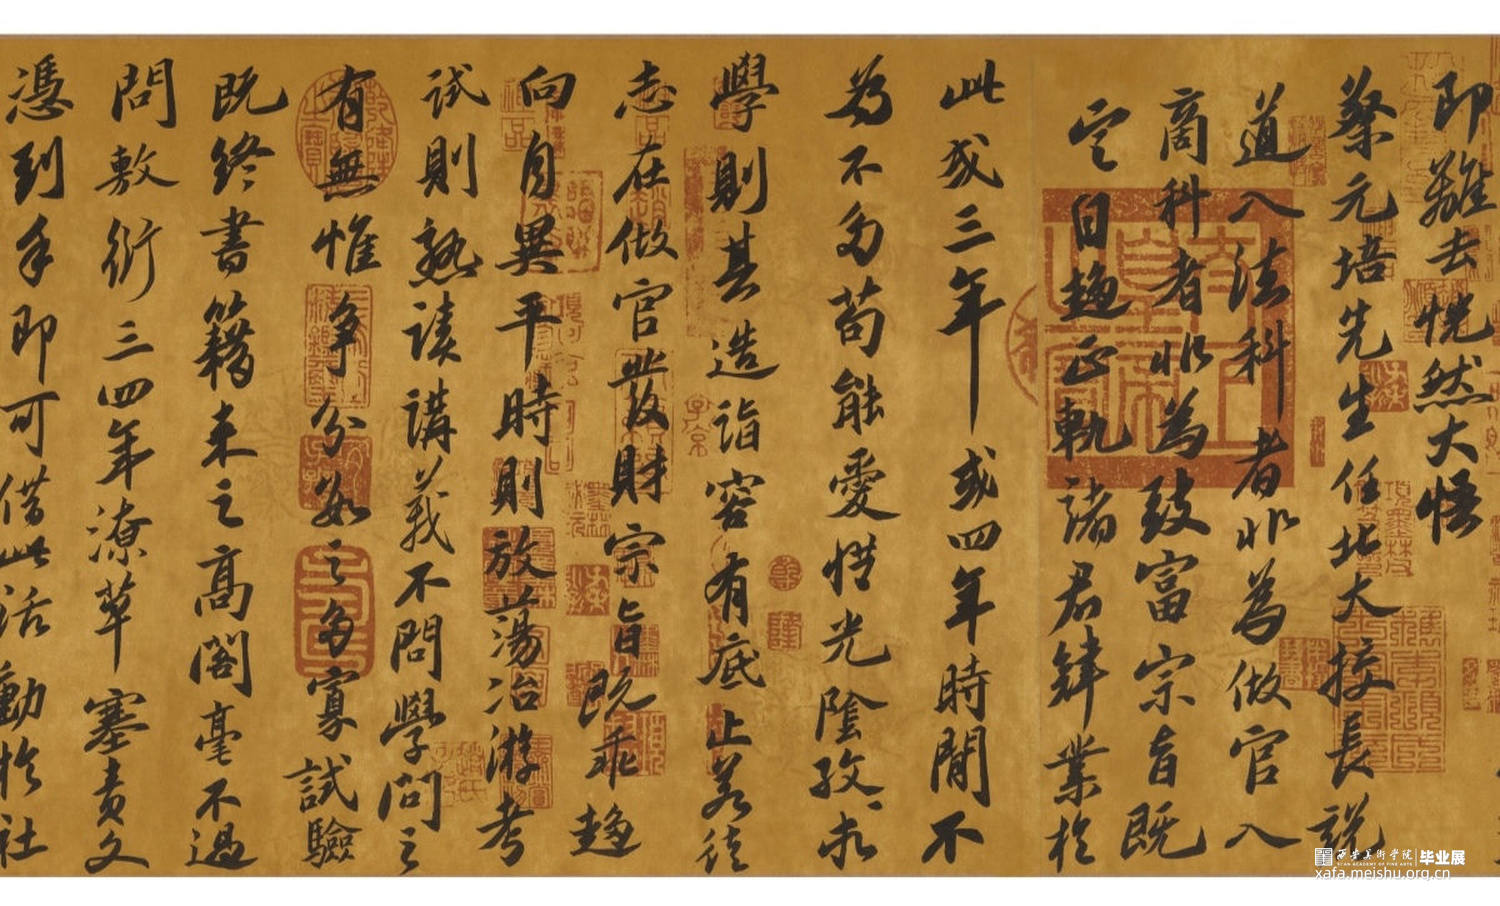 即難去恍然大悟
蔡元培先生任北大校長説
道入法科者非為做官入
商科者非為致富宗旨既
定自趨正軌諸君肄業於
此或三年或四年時間不
為不多苟能愛惜光陰孜孜求
學則其造詣容有底止若徒
志在做官發財宗旨既乖趨
向自異平時則放蕩冶游考
試則熟讀講義不問學問之
有無惟争分數之多寡試驗
既終書籍束之高閣毫不過
問敷衍三四年潦草塞責文
憑到手即可借此活動於社
西安美術學院 毕业展
XI'AN ACADEMY OF FINE ARTS
xafa.meishu.org.cn